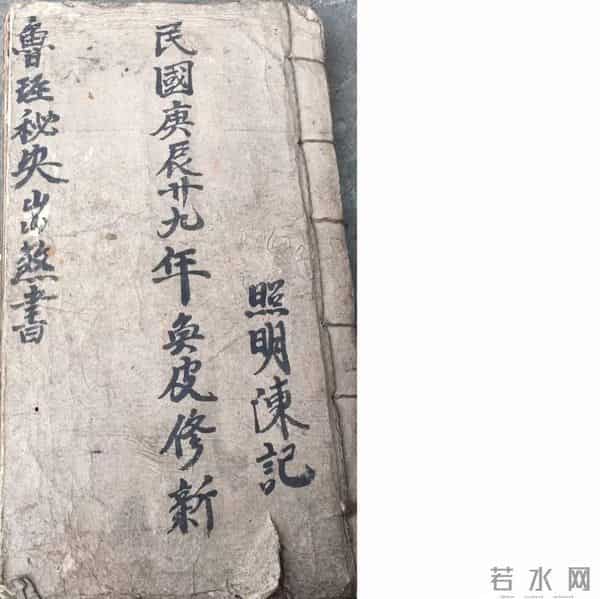 照明陳記
民國庚辰廿九年奐皮修新
魯班秘央出煞書
若水网